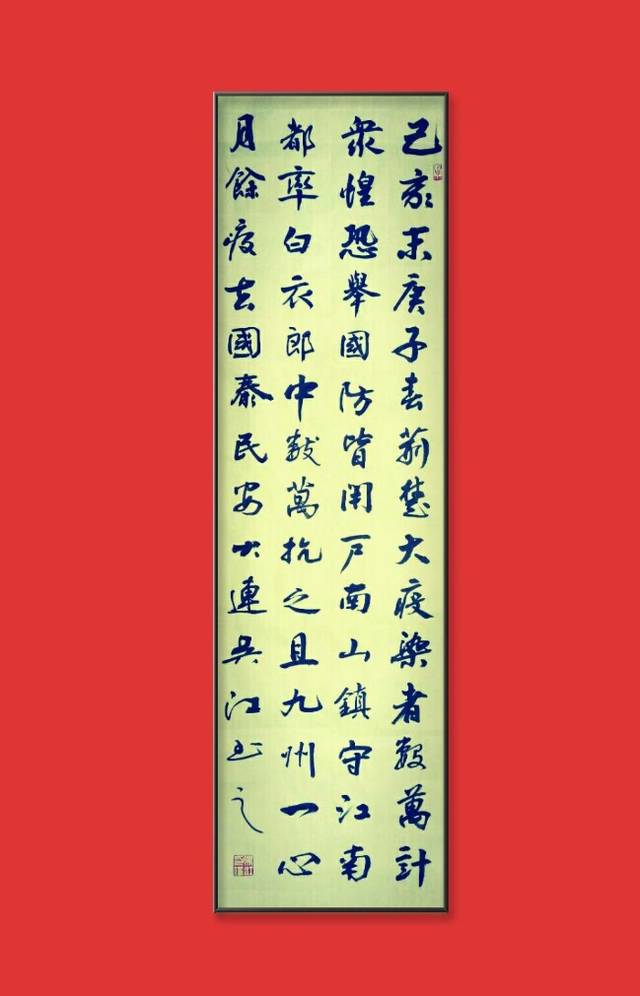 己亥末庚子春荊楚大疫染者數萬計
眾惶恐舉國防皆閉戶南山鎮守江南
都率白衣郎中數萬抗之且九州一心
月餘疫去國泰民安大連吳江書之